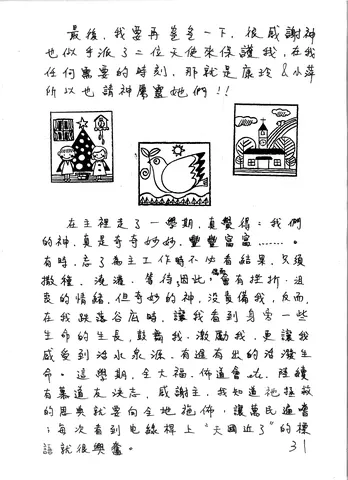 最後,我要再囉嗦一下,很感謝神
也似乎派了二位天使來保護我,在我
任何需要的時刻,那就是康玲&小萍
所以也請神厚靈她們!!
在主裡走了一學期,真覺得:我們
的神,真是奇奇妙妙,豐豐富富……。
有時,忘了為主工作時不必看結果,只須
撒種,澆灌,等待,因此,偶爾會有挫折、沮
喪的情緒,但奇妙的神,沒責備我,反而
在我跌落谷底時,讓我看到身旁一些
生命的生長,鼓勵我,激勵我,更讓我
感受到活水泉源,有進有出的活潑生
命。這學期,全大福、佈道會上,陸續
有慕道友決志,感謝主,我知道祂拯救
的恩典就要向全地施佈,讓萬民遍嚐
;每次看到電線桿上“天國近了”的標
語就很興奮。
31